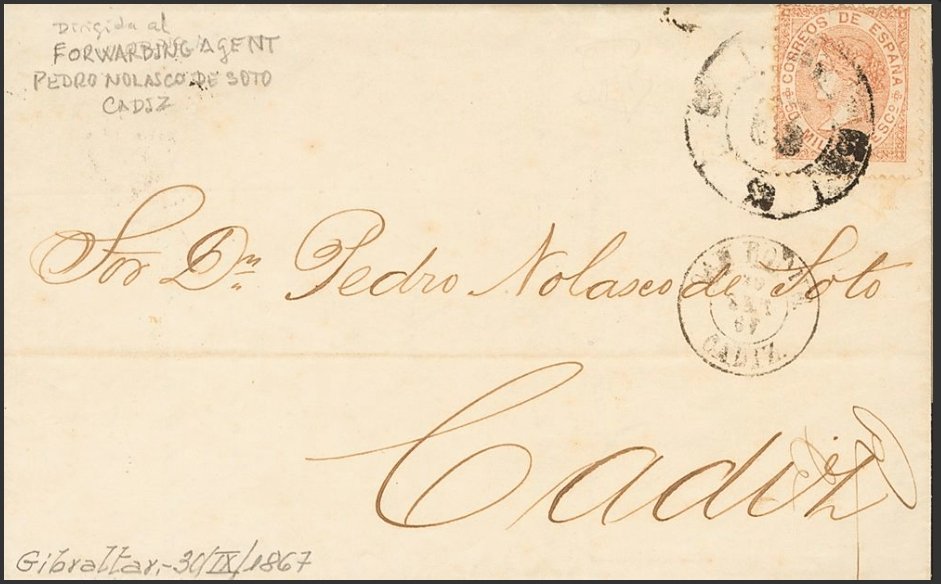 Dirigida al
FORWARDING AGENT
PEDRO NOLASCO DE SOTO
CADIZ
CORREOS DE ESPAÑA
50 MIL ESCO
SAN ROQUE
30
SET
67
CADIZ.
Sor Dn Pedro Nolasco de Soto
Cadiz
Gibraltar,-30/IX/1867